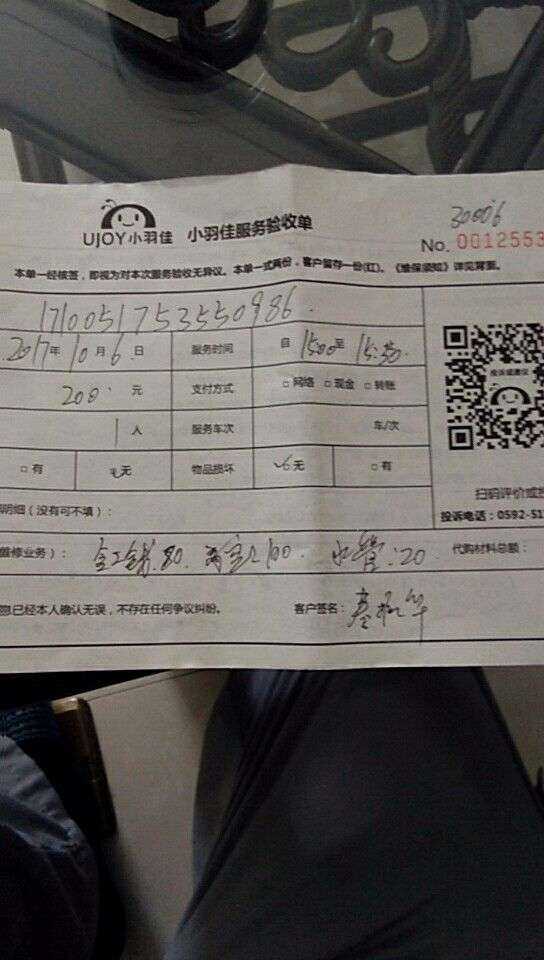 30006
UJOY小羽佳 小羽佳服务验收单
No. 0012553
本单一经核签，即视为对本次服务验收无异议。本单一式两份，客户留存一份(红)。《维保须知》详见背面。
1710051753550986
2017年10月6日 服务时间 自1500至15:50
200 元 支付方式 □网络 □现金 □转账
1人 服务车次 车/次
□有 无 物品损坏 无 □有
投诉或建议
扫码评价或投
明细（没有可不填）：
投诉电话：0592-51
值修业务）： 80 100 水管:20 代购材料总额：
息已经本人确认无误，不存在任何争议纠纷。 客户签名：